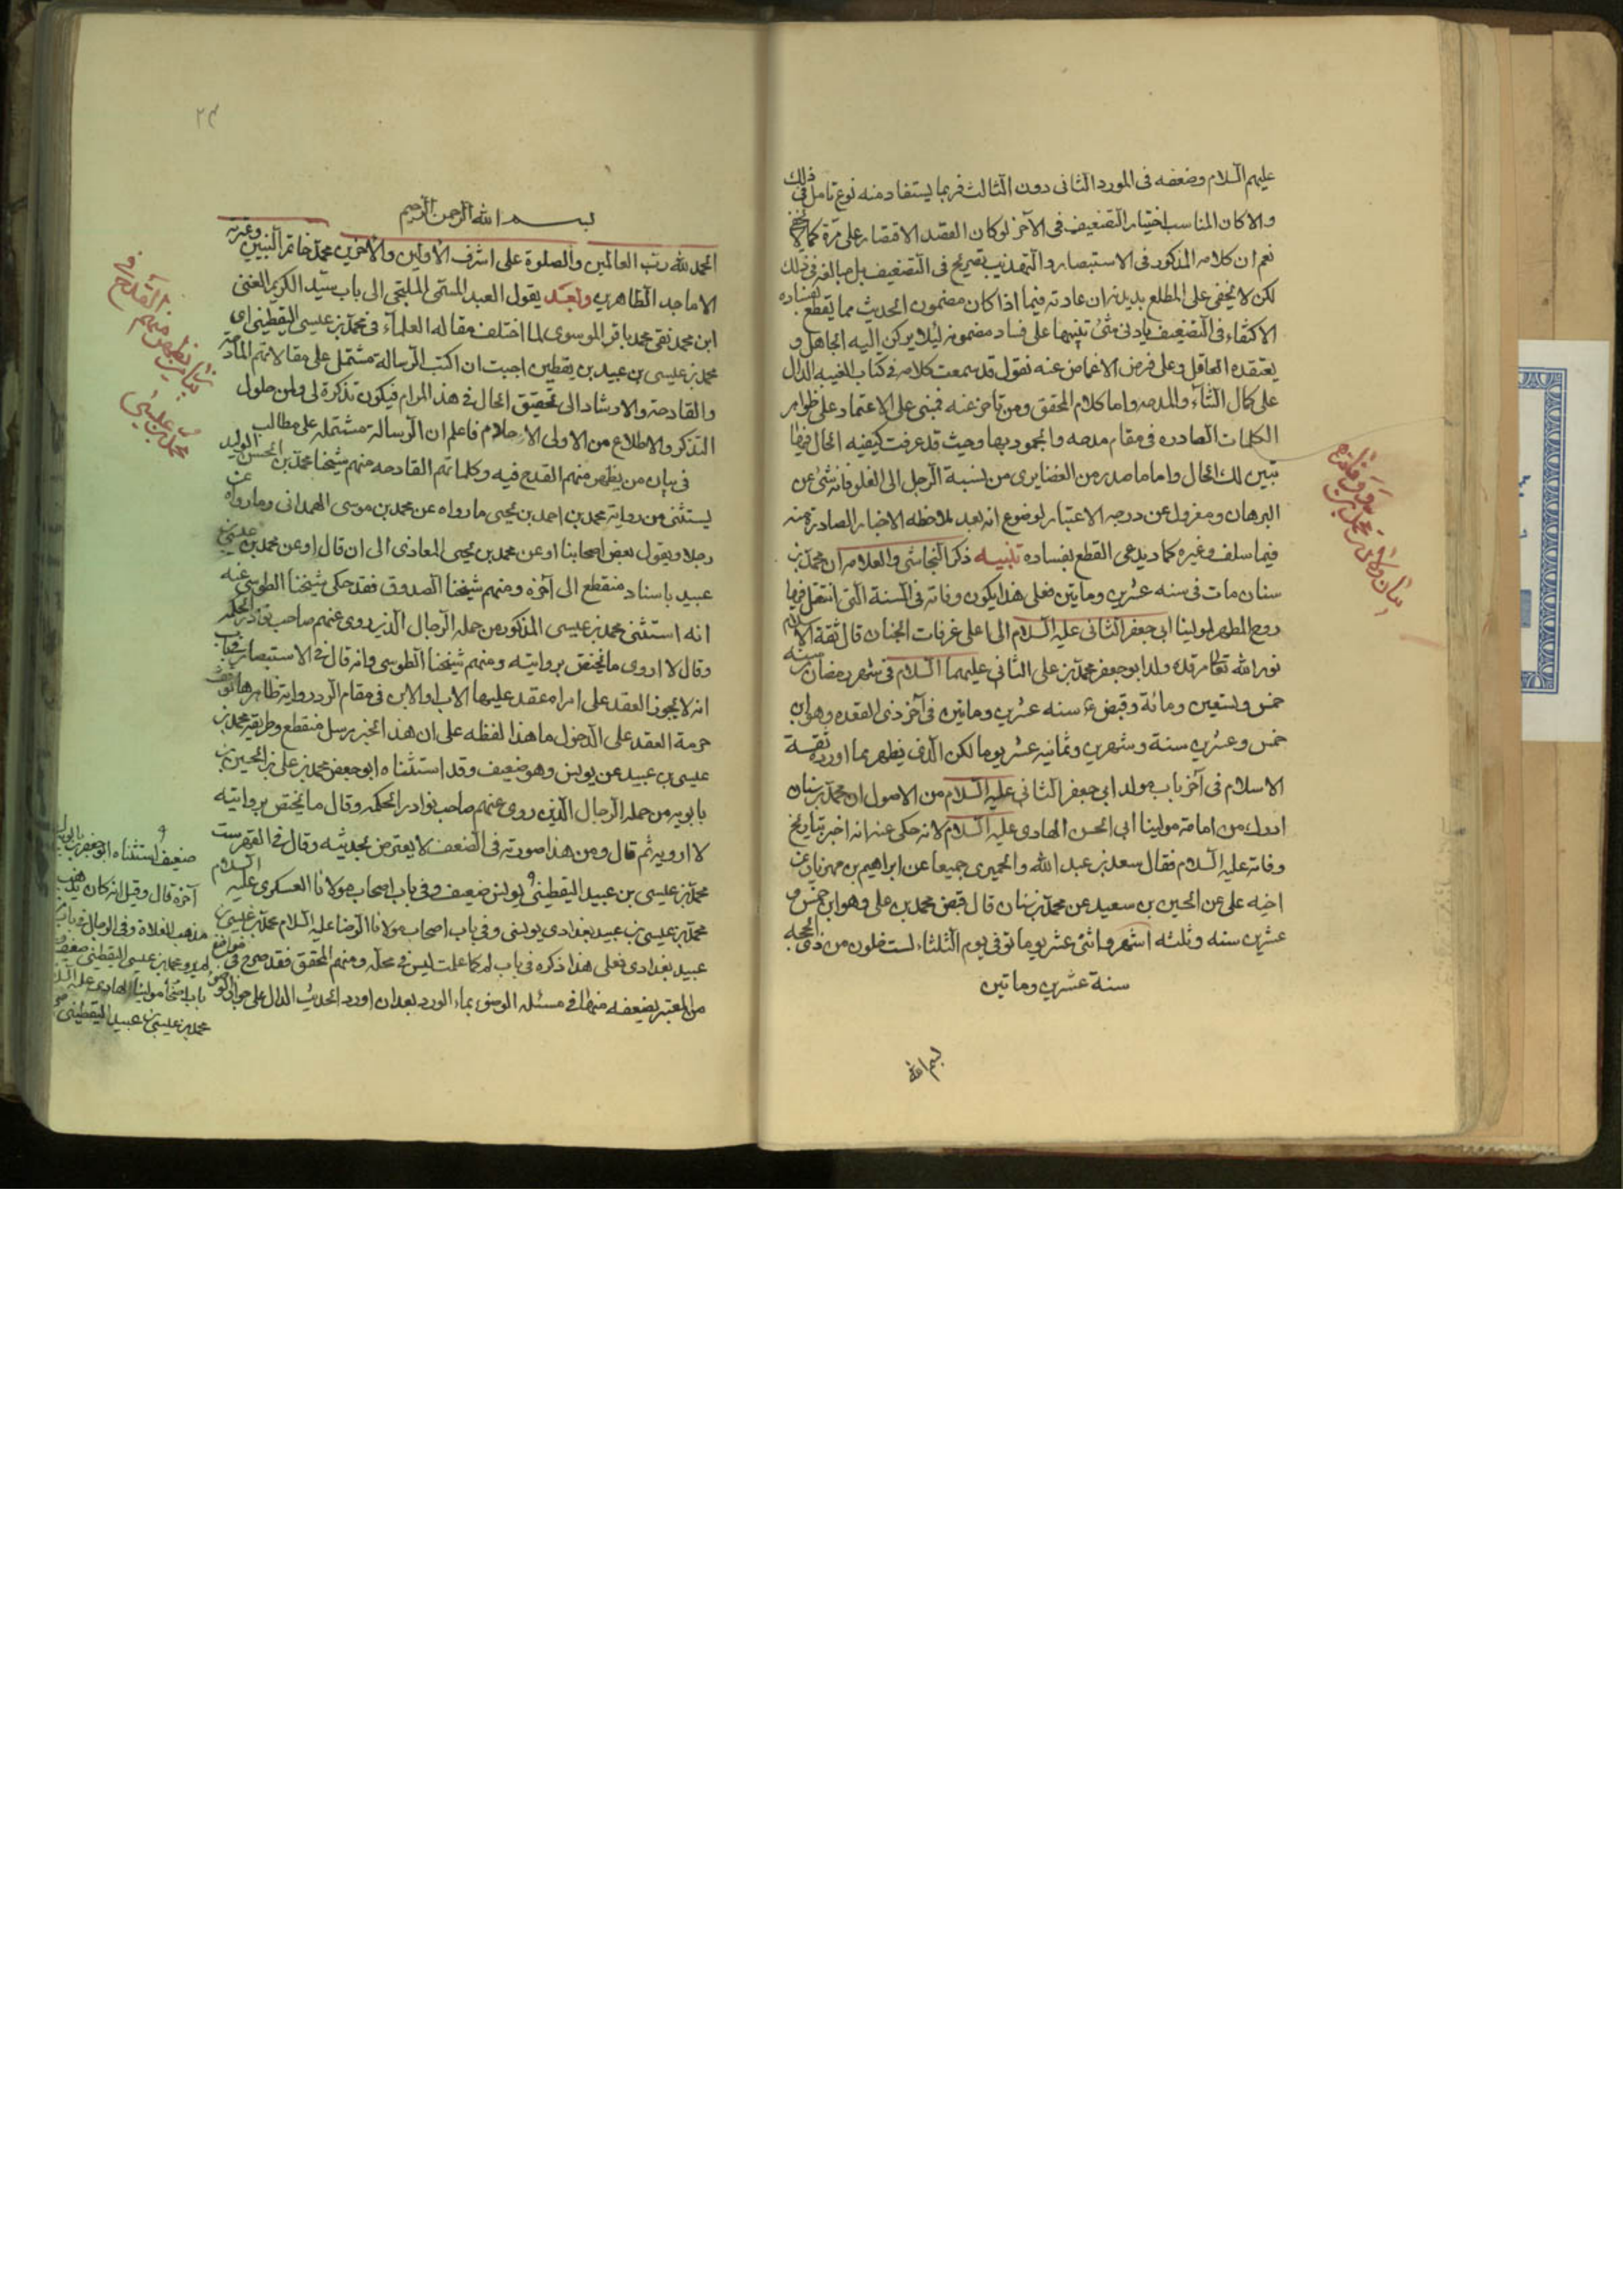 عليهم السلام وضعفه فى المورد الثانى دون الثالث فربما يستفاد منه نوع تامل فى ذلك
والا كان المناسب اختيار التضعيف فى الآخر لو كان القصد الاقتصار على مرة كما لا يخفى
نعم ان كلامه المذكور فى الاستبصار والتهذيب تصريح فى التضعيف بل مبالغه فى ذلك
لكن لا يخفى على المطلع بديدنه ان عادته فيما اذا كان مضمون الحديث مما يقطع بفساده
الاكتفاء فى التضعيف بادنى شئ تنبيها على فساد مضمونه ليلا يركن اليه الجاهل و
يعتقده الغافل وعلى فرض الاغماض عنه نقول قد سمعت كلامه فى كتاب الغيبه الدال
على كمال الثنآء والمدحه واما كلام المحقق ومن تاخر عنه فمبنى على الاعتماد على ظواهر
الكلمات الصادره فى مقام مدحه والجمود بها وحيث قد عرفت كيفيه الحال فيها
تبين لك الحال واما ما صدر من الغضايرى من نسبة الرجل الى الغلو فانه شئ عن
البرهان ومعزول عن درجه الاعتبار لوضوع انه بعد ملاحظه الاخبار الصادرة منه
فيما سلف وغيره كما د يدعى القطع بفساده تنبيه ذكر النجاشى والعلامه ان محمد بن
سنان مات فى سنه عشرين وماتين فعلى هذا يكون وفاته فى السنة التى انتقل فيها
روح المطهر لمولينا ابى جعفر الثانى عليه السلام الى اعلى غرفات الجنان قال ثقة الاسلام
نور الله تعالى مرقده ولد ابو جعفر محمد بن على الثانى عليهما السلام فى شهر رمضان سنه
خمس وتسعين ومائة وقبض ع سنه عشرين وماتين فى آخر ذى القعده وهو ابن
خمس وعشرين سنة وشهرين وثمانيه عشر يوما لكن الذى يظهر مما اورده ثقة
الاسلام فى آخر باب مولد ابى جعفر الثانى عليه السلام من الاصول ان محمد بن سنان
ادرك من امامة مولينا ابى الحسن الهادى عليه السلام لانه حكى عنه انه اخبر بتاريخ
وفاته عليه السلام فقال سعد بن عبد الله والحميرى جميعا عن ابراهيم بن مهزيار عن
اخيه على عن الحسين بن سعيد عن محمد بن سنان قال قبض محمد بن على وهو ابن خمس و
عشرين سنه وثلثه اشهر واثنى عشر يوما توفى يوم الثلثاء لست خلون من ذى الحجه
سنة عشرين وماتين
بسم الله
بيان وفات محمد بن
٢٣
بسم الله الرحمن الرحيم
الحمد لله رب العالمين والصلوة على اشرف الاولين والاخرين محمد خاتم النبيين وعترته
الاماجد الطاهرين وبعد يقول العبد المستقى الملتجى الى باب سيد الكريم الغنى
ابن محمد نقى محمد باقر الموسوى لما اختلف مقاله العلمآء فى محمد بن عيسى اليقطينى اى
محمد بن عيسى بن عبيد بن يقطين احببت ان اكتب الرساله مشتمل على مقالاتهم المادحة
والقادحة والارشاد الى تحقيق الحال فى هذا المرام فيكون تذكرة لى ولمن حاول
التذكر والاطلاع من الاولى الاحلام فاعلم ان الرسالة مشتمله على مطالب
فى بيان من يظهر منهم القدح فيه وكلماتهم القادحه منهم شيخنا محمد بن الحسن الوليد
يستثنى من رواية محمد بن احمد بن يحيى ما رواه عن محمد بن موسى الهمدانى وما رواه عن
رجل او يقول بعض اصحابنا او عن محمد بن يحيى المعاذى الى ان قال او عن محمد بن عيسى بن
عبيد باسناد منقطع الى آخره ومنهم شيخنا الصدوق فقد حكى شيخنا الطوسى عنه
انه استثنى محمد بن عيسى المذكور من جمله الرجال الذين روى عنهم صاحب نوادر الحكمه
وقال لا اروى ما يختص بروايته ومنهم شيخنا الطوسى وانه قال فى الاستبصار فى باب
انه لا يجوز العقد على امراه عقد عليها الاب او الابن فى مقام الرد رواية ظاهرها توقف
حرمة العقد على الدخول ما هذا لفظه على ان هذا الخبر مرسل منقطع وطريقه محمد بن
عيسى بن عبيد عن يونس وهو ضعيف وقد استثناه ابو جعفر محمد بن على بن الحسين بن
بابويه من جمله الرجال الذين روى عنهم صاحب نوادر الحكمه وقال ما يختص بروايته
لا ارويه ثم قال ومن هذا صورته فى الضعف لا يعترض بحديثه وقال فى الفهرست
محمد بن عيسى بن عبيد اليقطينى يونس ضعيف وفى باب اصحاب مولانا العسكرى عليه السلام
محمد بن عيسى بن عبيد بغدادى يونسى وفى باب اصحاب مولانا الرضا عليه السلام محمد بن عيسى بن
عبيد بغدادى فعلى هذا ذكره فى باب لم كما علمت ليس فى محله ومنهم المحقق فقد صرح فى مواضع
من المعتبر بضعفه منها فى مسئله الوضوء بماء الورد بعد ان اورد الحديث الدال على جواز الوضوء
بيان من يظهر منهم القدح فى
محمد بن عيسى
ضعيف استثناه ابو جعفر بن بابويه
آخره قال وقيل انه كان يذهب
مذهب الغلاة وفى الرجال فى باب
لم يرو محمد بن عيسى اليقطينى ضعيف
باب اصحاب مولينا الهادى عليه السلام
محمد بن عيسى بن عبيد اليقطينى